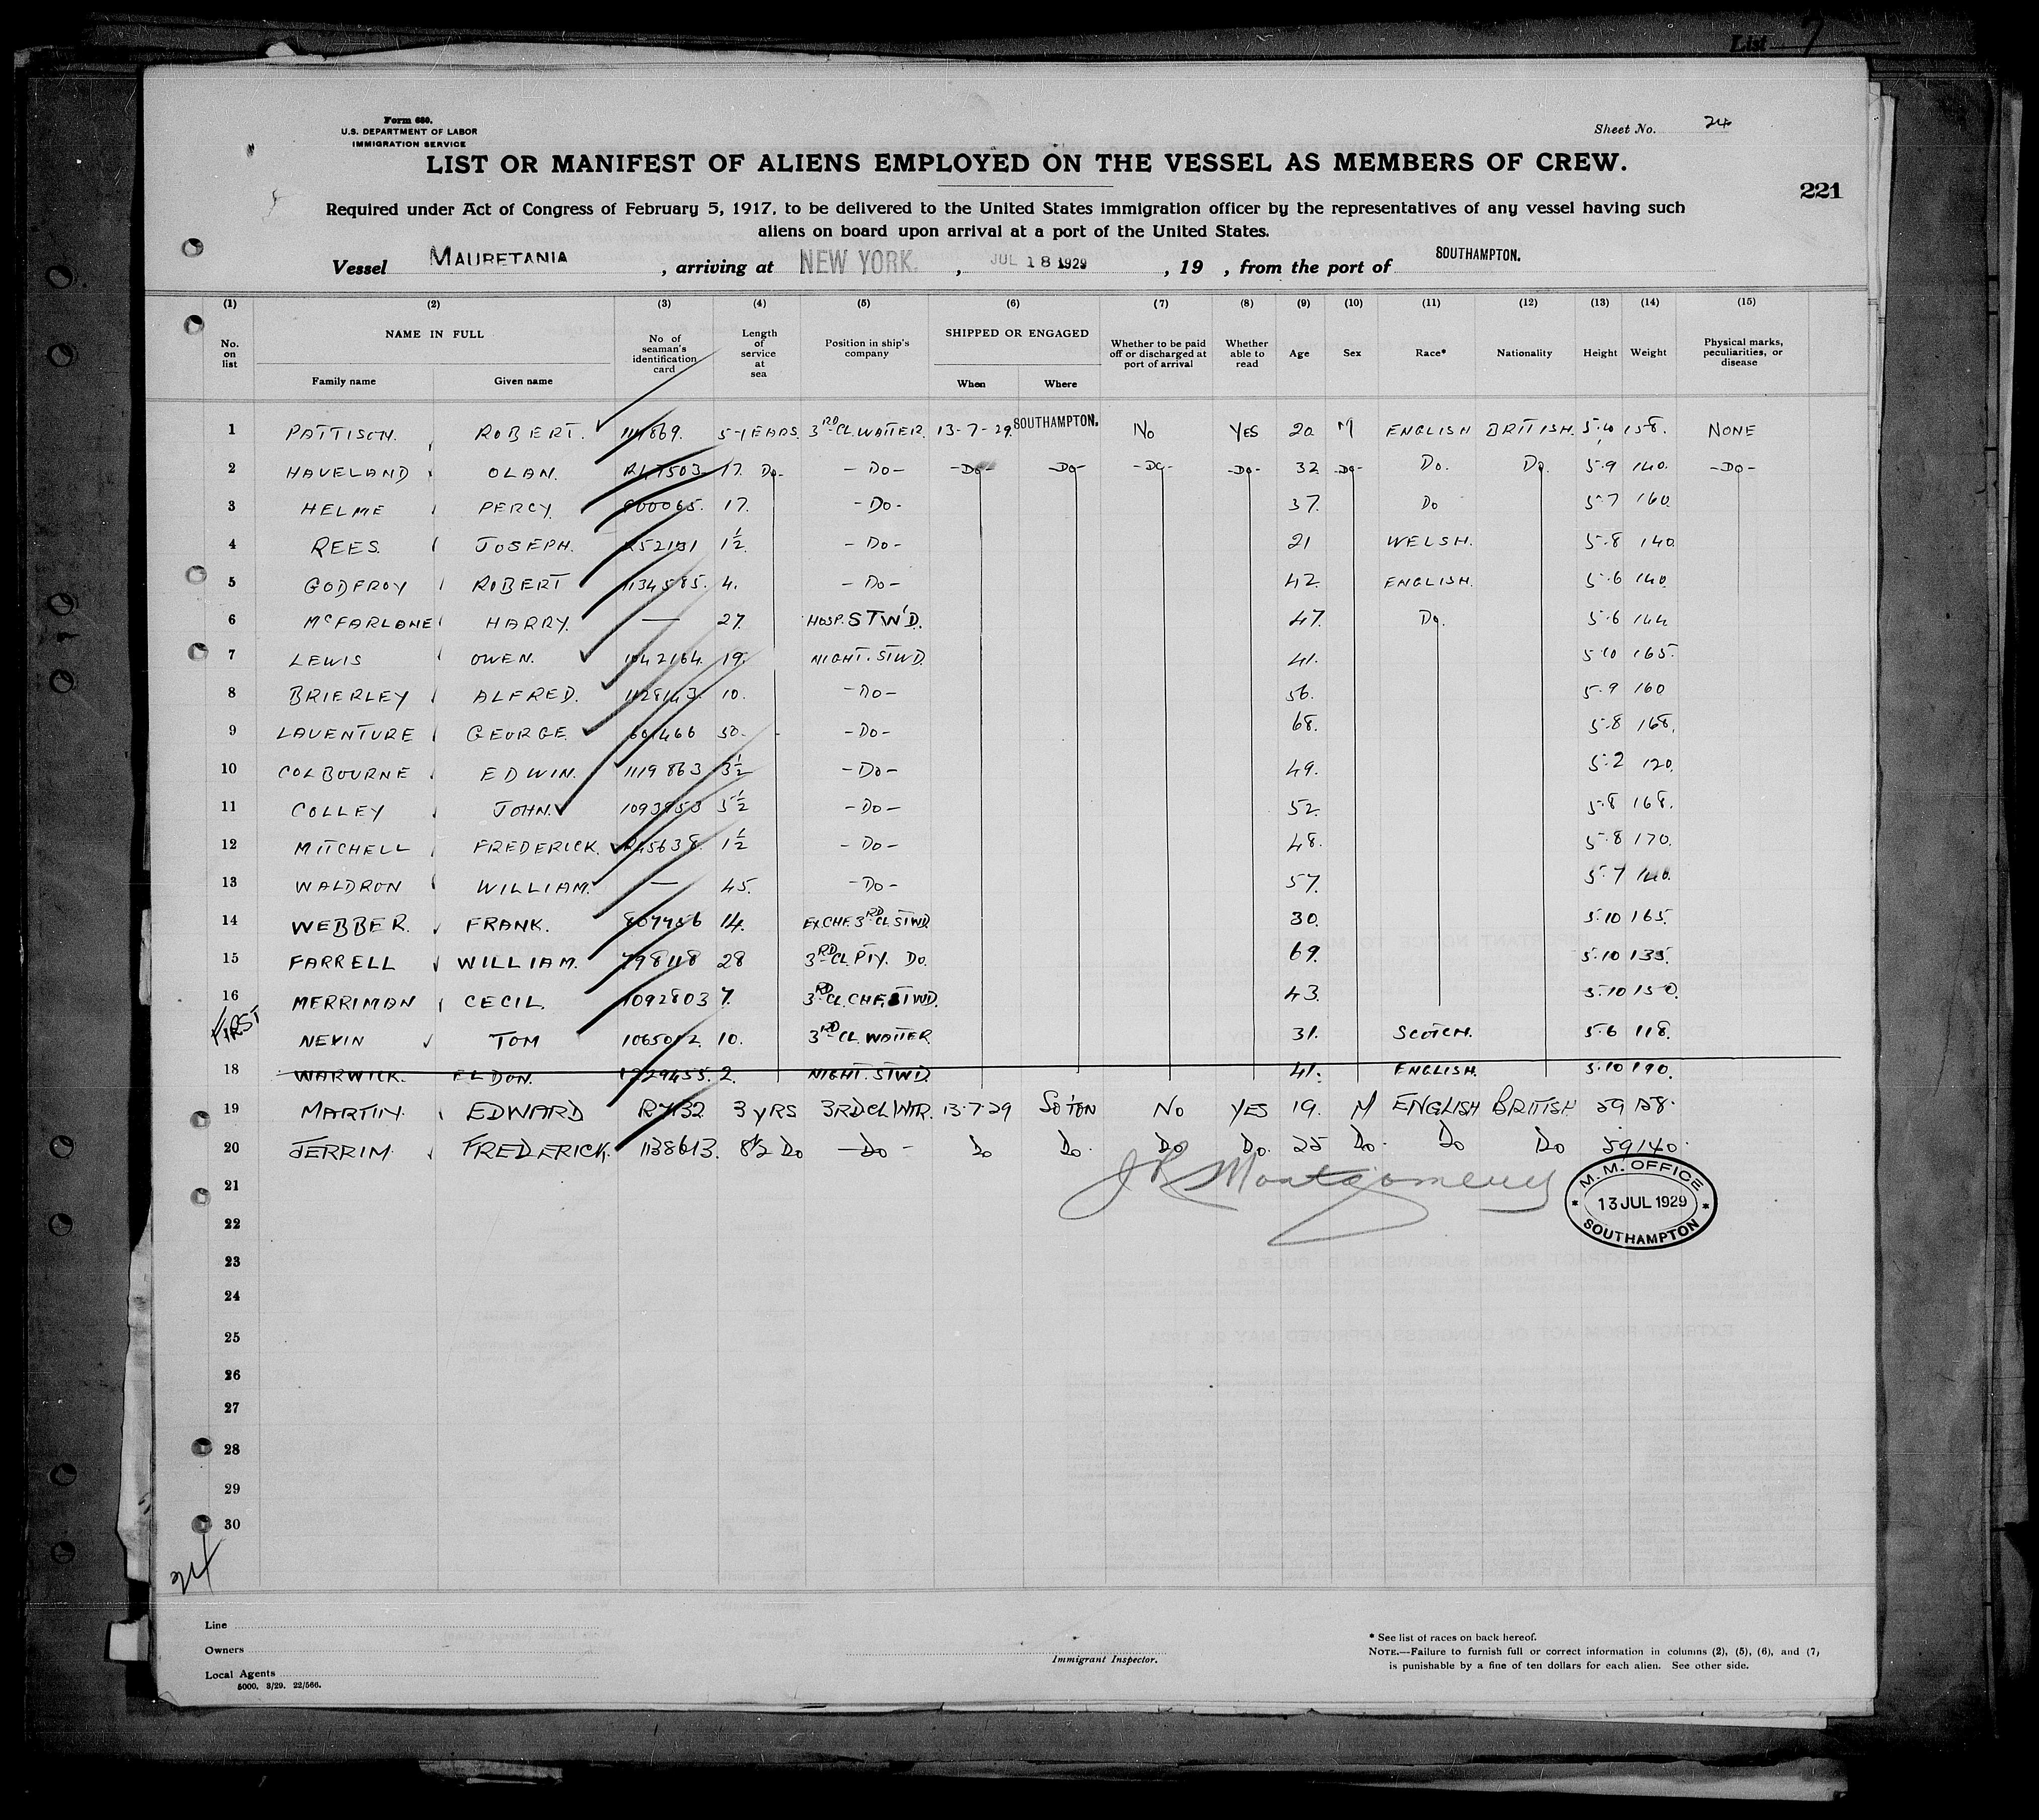 List 7
Form 680.
U.S. DEPARTMENT OF LABOR
IMMIGRATION SERVICE
Sheet No. 24
LIST OR MANIFEST OF ALIENS EMPLOYED ON THE VESSEL AS MEMBERS OF CREW.
221
Required under Act of Congress of February 5, 1917, to be delivered to the United States immigration officer by the representatives of any vessel having such
aliens on board upon arrival at a port of the United States.
Vessel MAURETANIA, arriving at NEW YORK., JUL 18 1929, 19 , from the port of SOUTHAMPTON.
(1) (2) (3) (4) (5) (6) (7) (8) (9) (10) (11) (12) (13) (14) (15)
No. on list NAME IN FULL Family name Given name No. of seaman's identification card Length of service at sea Position in ship's company SHIPPED OR ENGAGED When Where Whether to be paid off or discharged at port of arrival Whether able to read Age Sex Race* Nationality Height Weight Physical marks, peculiarities, or disease
1 PATTISON. ROBERT. 5 YEARS. 3RD CL. WAITER. 13-7-29. SOUTHAMPTON. NO YES 20 M ENGLISH BRITISH. 158. NONE
2 HAVELAND OLAN. 17. DO. -DO- -DO- -DO- -DO- -DO- 32 -DO- DO. DO. 5.9 140. -DO-
3 HELME PERCY. 17. -DO- 37. DO 5.7 160.
4 REES. JOSEPH. 1½ -DO- 21 WELSH. 5.8 140
5 GODFROY ROBERT 4. -DO- 42. ENGLISH. 5.6 140
6 McFARLANE HARRY. — 27 HOSP. STW'D. 47. DO. 5.6 144
7 LEWIS OWEN. 1042164. 19. NIGHT. STWD. 41. 5.10 165.
8 BRIERLEY ALFRED. 10. -DO- 56. 5.9 160
9 LAVENTURE GEORGE. 50. -DO- 68. 5.8 168.
10 COLBOURNE EDWIN. 1119863 3½ -DO- 49. 5.2 120.
11 COLLEY JOHN. 5½ -DO- 52. 5.8 168.
12 MITCHELL FREDERICK. 1½ -DO- 48. 5.8 170.
13 WALDRON WILLIAM. — 45. -DO- 57. 5.7 140.
14 WEBBER. FRANK. 14. EX. CHF. 3RD CL. STWD. 30. 5.10 165.
15 FARRELL WILLIAM. 798118 28 3RD CL. PTY. DO. 69. 5.10 135.
16 MERRIMAN CECIL. 1092803 7. 3RD CL. CHF. STWD. 43. 5.10 150.
FIRST NEVIN TOM 10. 3RD CL. WAITER 31. SCOTCH. 5.6 118.
18 WARWICK. ELDON. 1229455. 2. NIGHT. STWD. 41. ENGLISH. 5.10 190.
19 MARTIN. EDWARD 3 YRS 3RD CL WTR. 13.7.29 SO'TON NO YES 19. M ENGLISH BRITISH 59 158.
20 JERRIM. FREDERICK. 1138613. 8½ DO -DO- DO DO. DO DO. 25 DO. DO DO 59 140.
21 J R Montgomery
M. M. OFFICE
13 JUL 1929
SOUTHAMPTON
22
23
24
25
26
27
28
29
30
24
Line
Owners
Local Agents
5000. 3/29. 22/566.
Immigrant Inspector.
* See list of races on back hereof.
NOTE.—Failure to furnish full or correct information in columns (2), (5), (6), and (7)
is punishable by a fine of ten dollars for each alien. See other side.